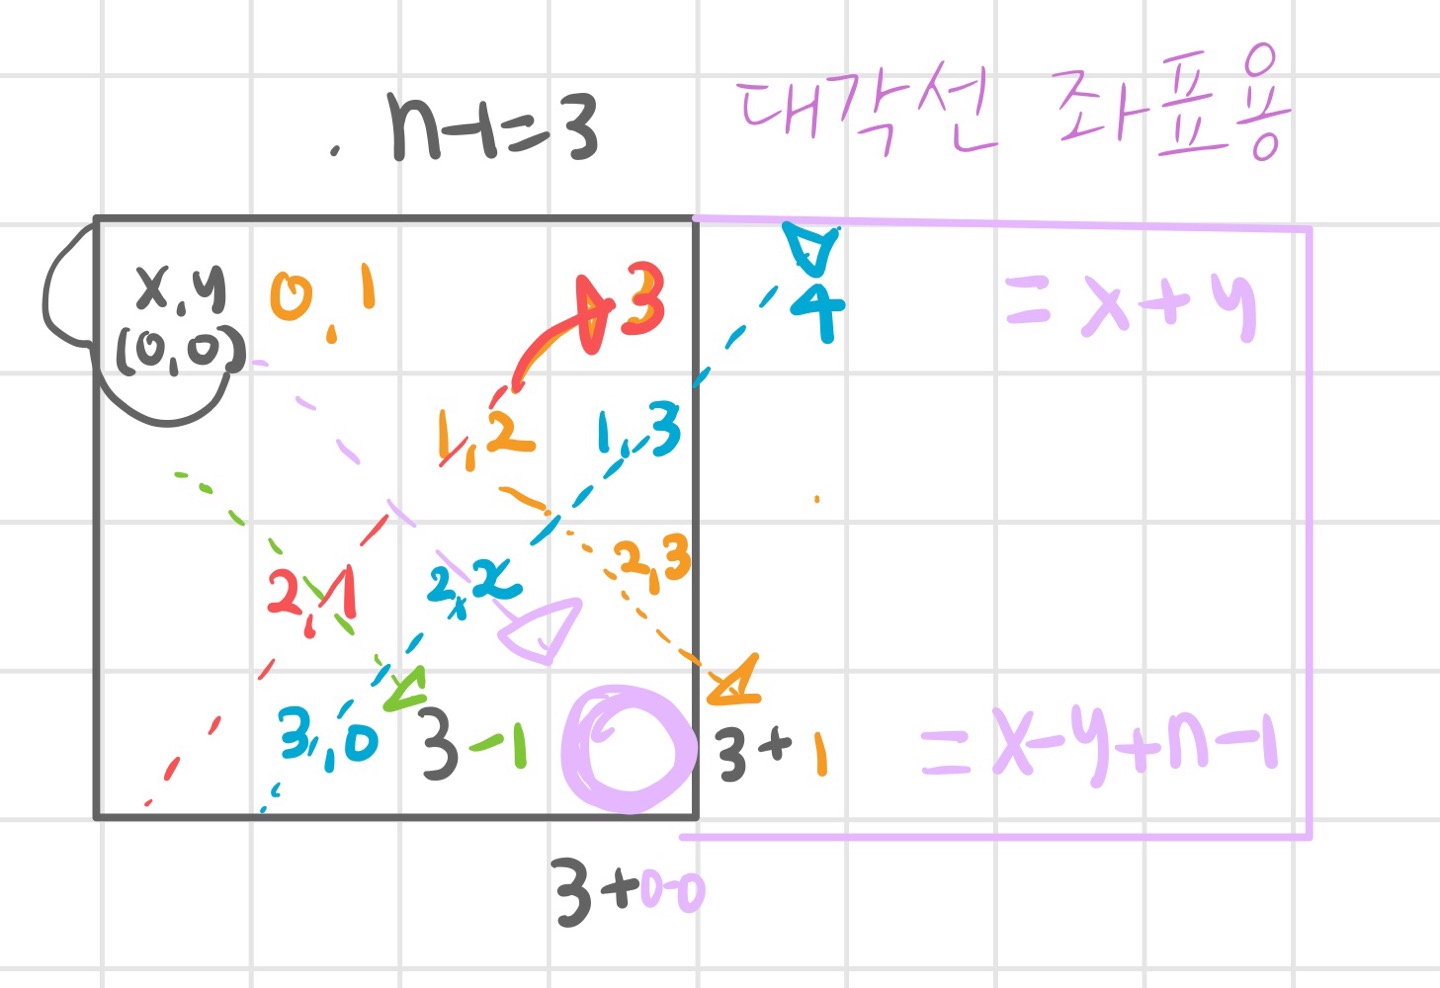 n-1=3
대각선 좌표용
x,y 0,1 3
(0,0) 4 = x+y
1,2 1,3
2,1 2,2 2,3
3,0 3-1 3+1 = x-y+n-1
3+0-0